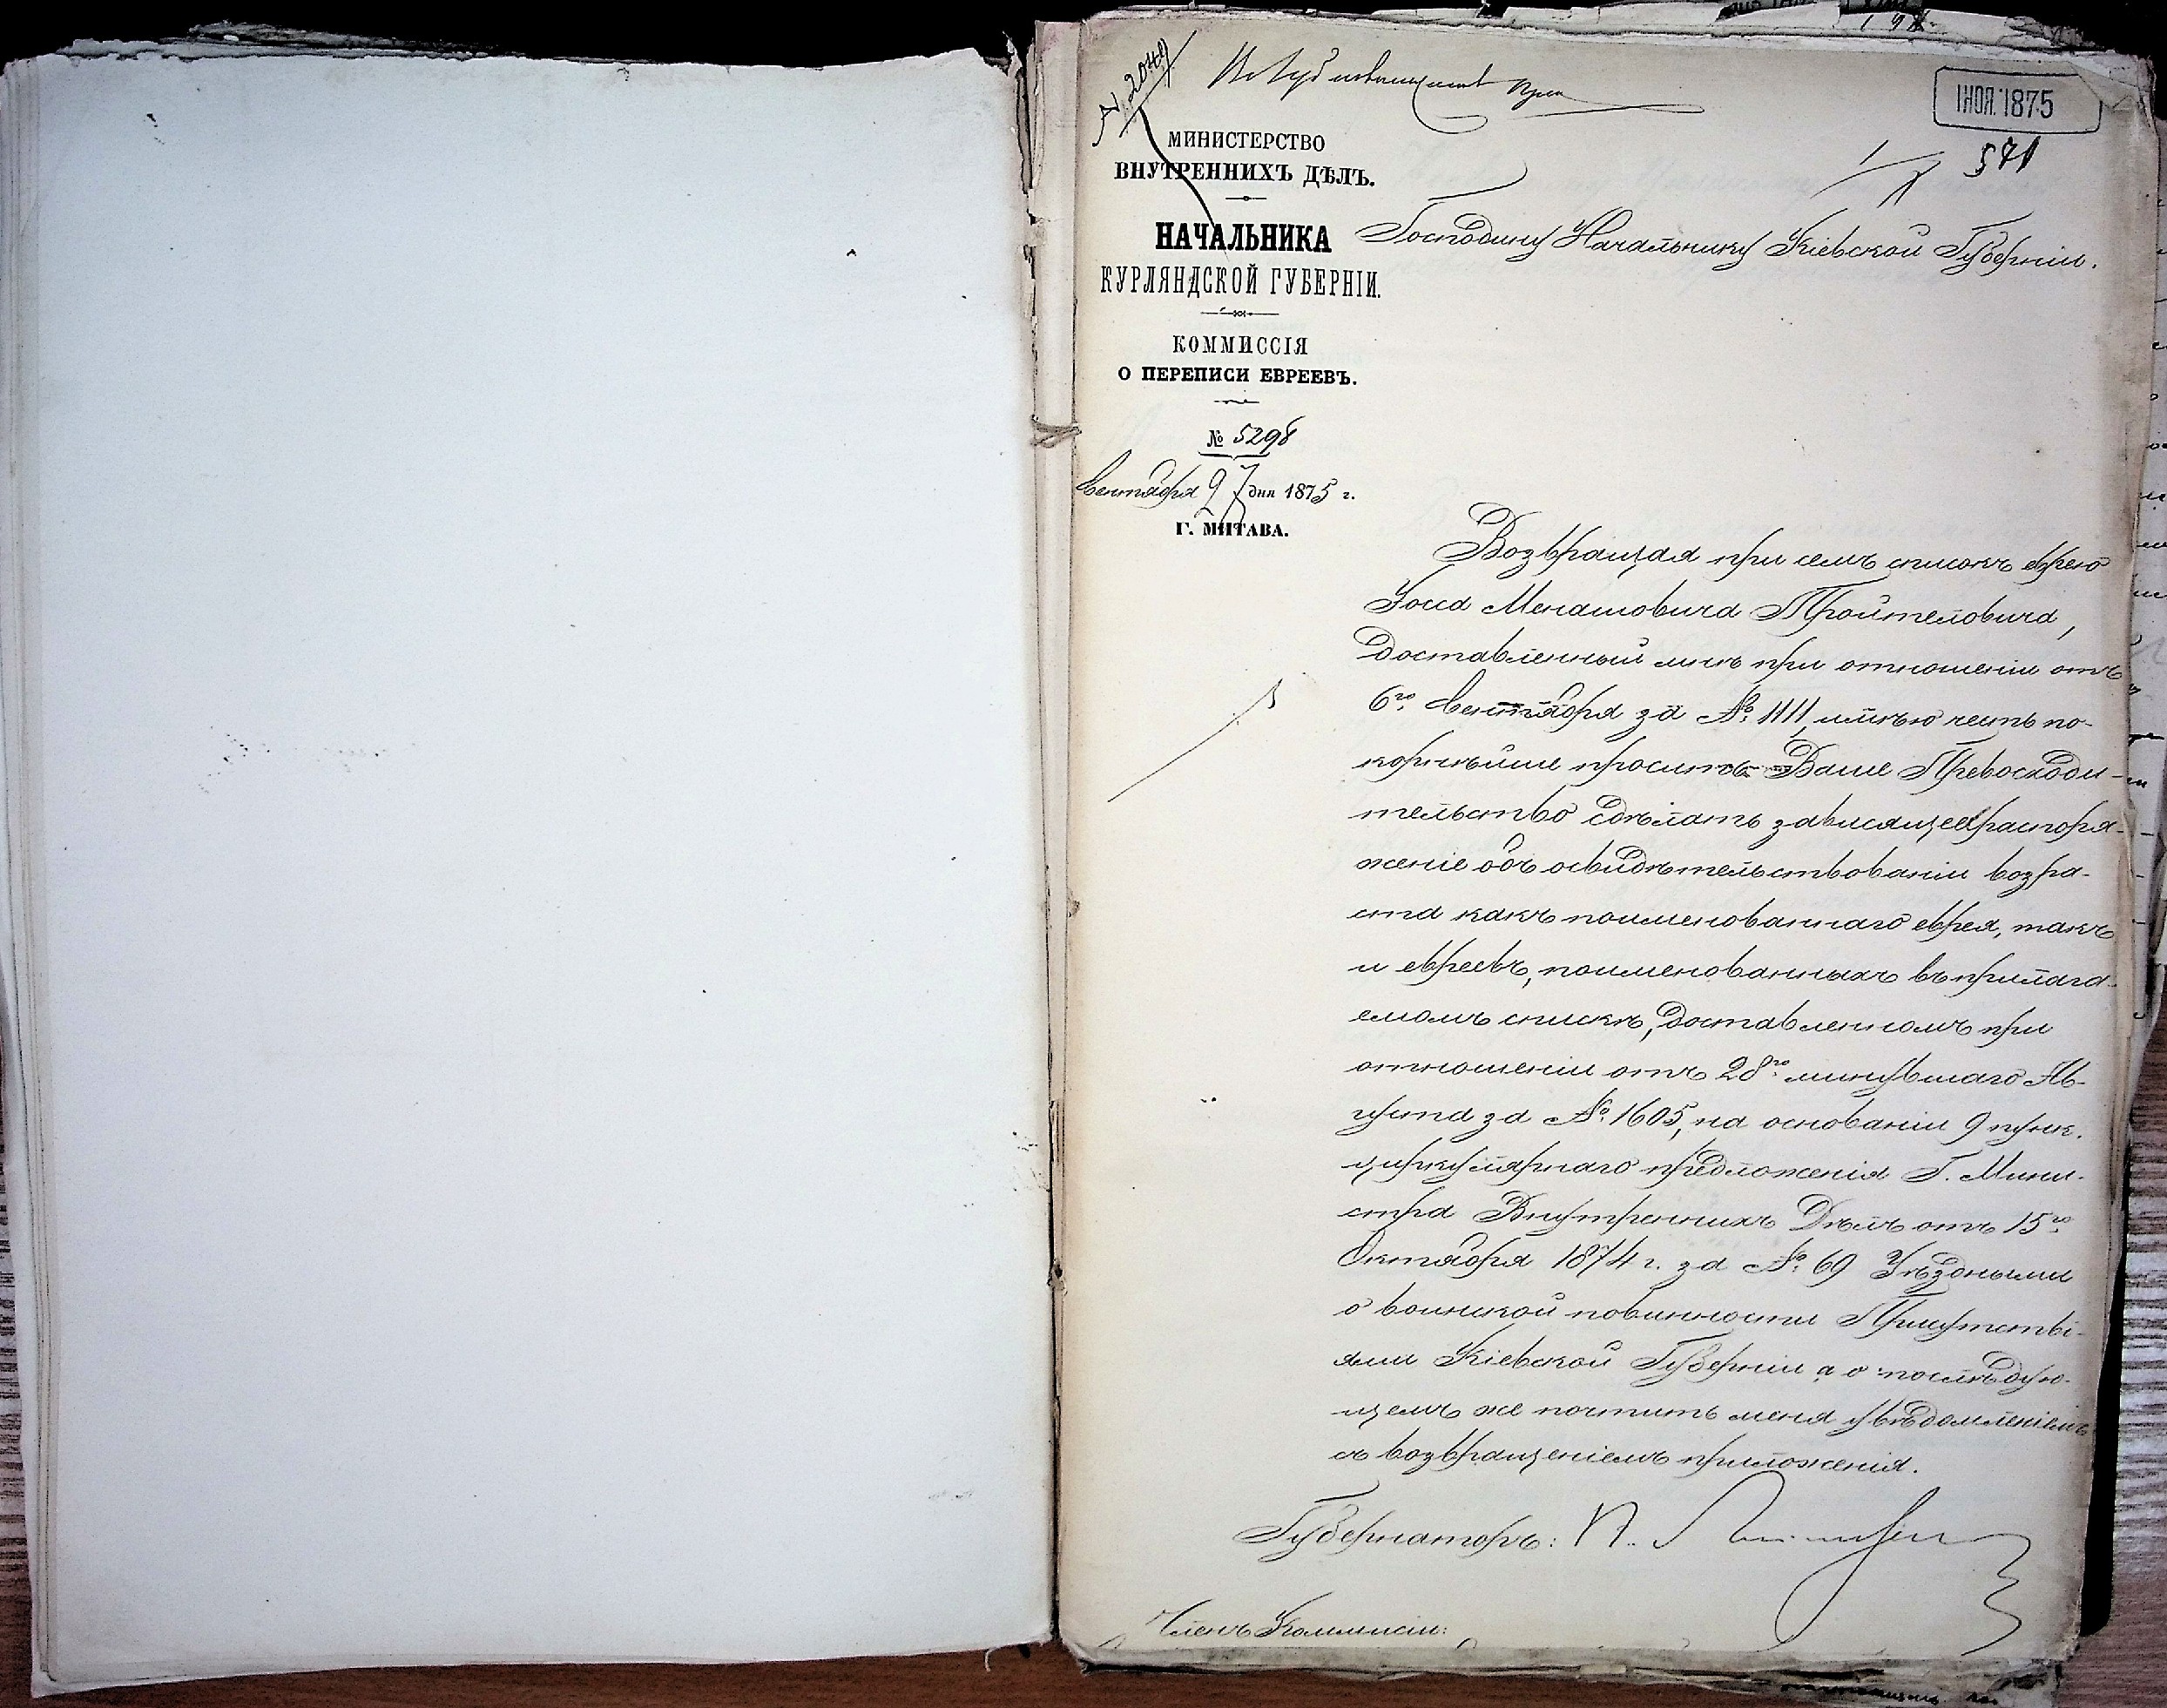 № 2049
1 НОЯ. 1875
571
МИНИСТЕРСТВО
ВНУТРЕННИХЪ ДѢЛЪ.
НАЧАЛЬНИКА
КУРЛЯНДСКОЙ ГУБЕРНІИ.
КОММИССІЯ
О ПЕРЕПИСИ ЕВРЕЕВЪ.
№ 5298
Сентября 27 дня 1875 г.
Г. МИТАВА.
Господину Начальнику Кіевской Губерніи.
Возвращая при семъ списокъ еврею
Менашовича Тройтеловича,
доставленный мнѣ при отношеніи отъ
6го Сентября за № 1111, имѣю честь по-
корнѣйше просить Ваше Превосходи-
тельство сдѣлать зависящее распоря-
женіе объ освидѣтельствованіи возра-
ста какъ поименованнаго еврея, такъ
и евреевъ, поименованныхъ въ прилага-
емомъ спискѣ, доставленномъ при
отношеніи отъ 28го минувшаго Ав-
густа за № 1605, на основаніи 9 пунк.
циркулярнаго предложенія Г. Мини-
стра Внутреннихъ Дѣлъ отъ 15го
Октября 1874 г. за № 69 Уѣздными
о воинской повинности Присутстві-
ями Кіевской Губерніи а о послѣдую-
щемъ же почтить меня увѣдомленіемъ
съ возвращеніемъ приложенія.
Губернаторъ: П.
Членъ Коммисіи: